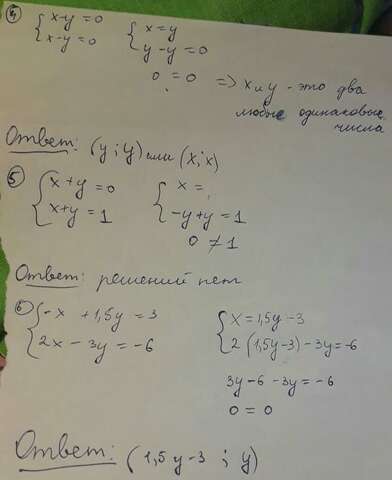 ④ { x-y=0 { x=y
x-y=0 y-y=0
0=0 => x и y - это два
любые одинаковые
числа
Ответ: (y;y) или (x;x)
⑤ { x+y=0 { x=
x+y=1 -y+y=1
0≠1
Ответ: решений нет
⑥ { -x+1,5y=3 { x=1,5y-3
2x-3y=-6 2(1,5y-3)-3y=-6
3y-6-3y=-6
0=0
Ответ: (1,5y-3; y)